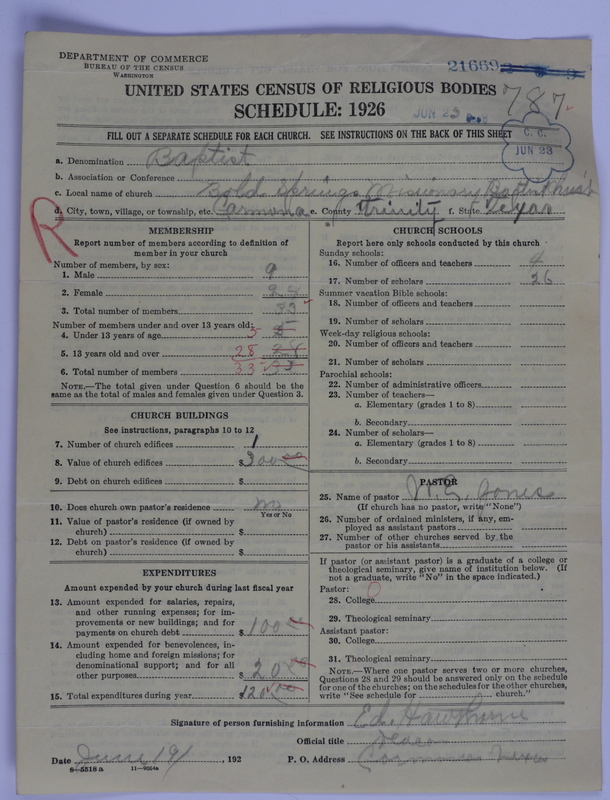 DEPARTMENT OF COMMERCE
BUREAU OF THE CENSUS
WASHINGTON
21669
UNITED STATES CENSUS OF RELIGIOUS BODIES
787
SCHEDULE: 1926
JUN 23
FILL OUT A SEPARATE SCHEDULE FOR EACH CHURCH. SEE INSTRUCTIONS ON THE BACK OF THIS SHEET
C. C.
JUN 23
a. Denomination Baptist
b. Association or Conference
c. Local name of church Gold Springs Missionary Baptist
d. City, town, village, or township, etc. Carmona e. County Trinity f. State Texas
R
MEMBERSHIP
Report number of members according to definition of member in your church
Number of members, by sex:
1. Male 9
2. Female 24
3. Total number of members 33
Number of members under and over 13 years old:
4. Under 13 years of age 5 5
5. 13 years old and over 28 24
6. Total number of members 33 33
NOTE.—The total given under Question 6 should be the same as the total of males and females given under Question 3.
CHURCH BUILDINGS
See instructions, paragraphs 10 to 12
7. Number of church edifices 1
8. Value of church edifices $300.00
9. Debt on church edifices $
10. Does church own pastor's residence no
Yes or No
11. Value of pastor's residence (if owned by church) $
12. Debt on pastor's residence (if owned by church) $
EXPENDITURES
Amount expended by your church during last fiscal year
13. Amount expended for salaries, repairs, and other running expenses; for improvements or new buildings; and for payments on church debt $100.00
14. Amount expended for benevolences, including home and foreign missions; for denominational support; and for all other purposes $20.00
15. Total expenditures during year $120.00
CHURCH SCHOOLS
Report here only schools conducted by this church
Sunday schools:
16. Number of officers and teachers 4
17. Number of scholars 26
Summer vacation Bible schools:
18. Number of officers and teachers
19. Number of scholars
Week-day religious schools:
20. Number of officers and teachers
21. Number of scholars
Parochial schools:
22. Number of administrative officers
23. Number of teachers—
a. Elementary (grades 1 to 8)
b. Secondary
24. Number of scholars—
a. Elementary (grades 1 to 8)
b. Secondary
PASTOR
25. Name of pastor W. E. Jones
(If church has no pastor, write "None")
26. Number of ordained ministers, if any, employed as assistant pastors
27. Number of other churches served by the pastor or his assistants
If pastor (or assistant pastor) is a graduate of a college or theological seminary, give name of institution below. (If not a graduate, write "No" in the space indicated.)
Pastor:
28. College 0
29. Theological seminary
Assistant pastor:
30. College
31. Theological seminary
NOTE.—Where one pastor serves two or more churches, Questions 28 and 29 should be answered only on the schedule for one of the churches; on the schedules for the other churches, write "See schedule for church."
Signature of person furnishing information Ed. Hawthorne
Official title Deacon
Date June 19, 192 P. O. Address Carmona Texas
8—5518 a 11—9064a